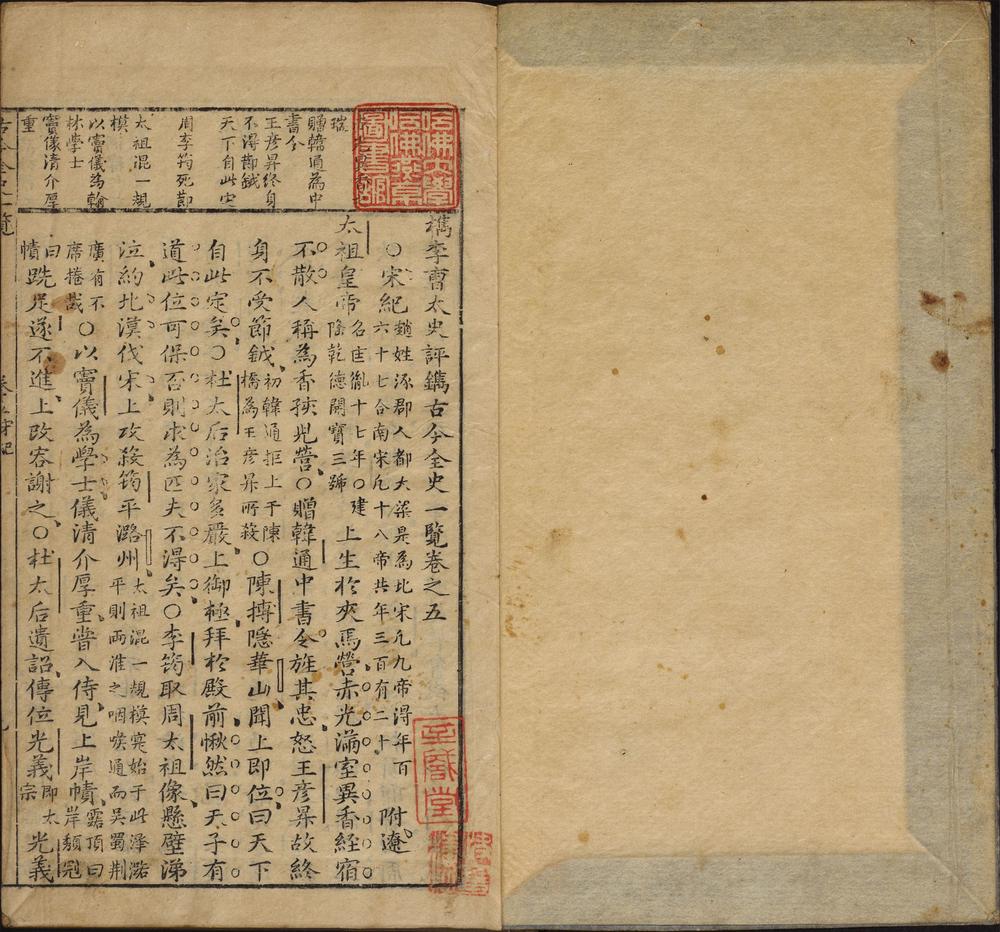 哈佛大學
哈佛燕京
圖書館
檇李曹太史評鐫古今全史一覽卷之五
○宋紀
趙姓涿郡人都大梁是為北宋凡九帝得年百
六十七合南宋凡十八帝共年三百有二十
附遼
太祖皇帝
名匡胤十七年○建
隆乾德開寶三號
上生於夾馬營赤光滿室異香經宿
不散人稱為香孩兒營○贈韓通中書令旌其忠怒王彦昇故終
身不受節鉞
初韓通拒上于陳
橋為王彦昇所殺
○陳摶隱華山聞上即位曰天下
自此定矣○杜太后治家多嚴上御極拜於殿前愀然曰天子有
道此位可保否則求為匹夫不得矣○李筠取周太祖像懸壁涕
泣約北漢伐宋上攻殺筠平潞州
太祖混一規模寔始于此澤潞
平則兩淮之咽喉通而吳蜀荆
廣有不
席捲哉
○以竇儀為學士儀清介厚重嘗入侍見上岸幘
露頂曰
岸頹冠
曰
幘
跣足遂不進上改容謝之○杜太后遺詔傳位光義
即太
宗
光義
瑞
贈韓通為中
書令
王彦昇終身
不得節鉞
天下自此定
周李筠死節
太祖混一規
模
以竇儀為翰
林學士
竇儀清介厚
重